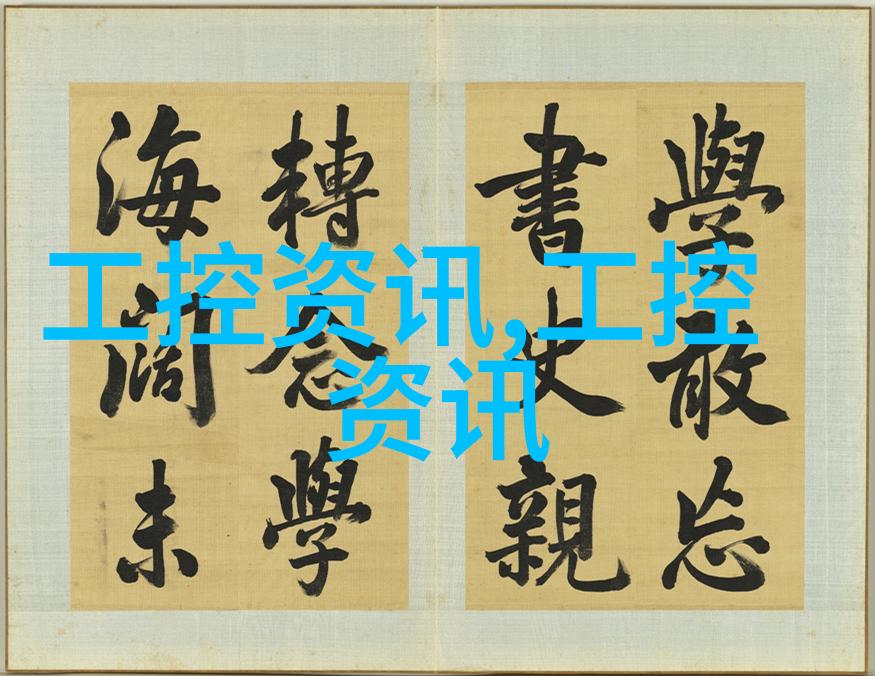 工控资讯,工控
资讯
學敢忘
書史親
轉念學
海闊未